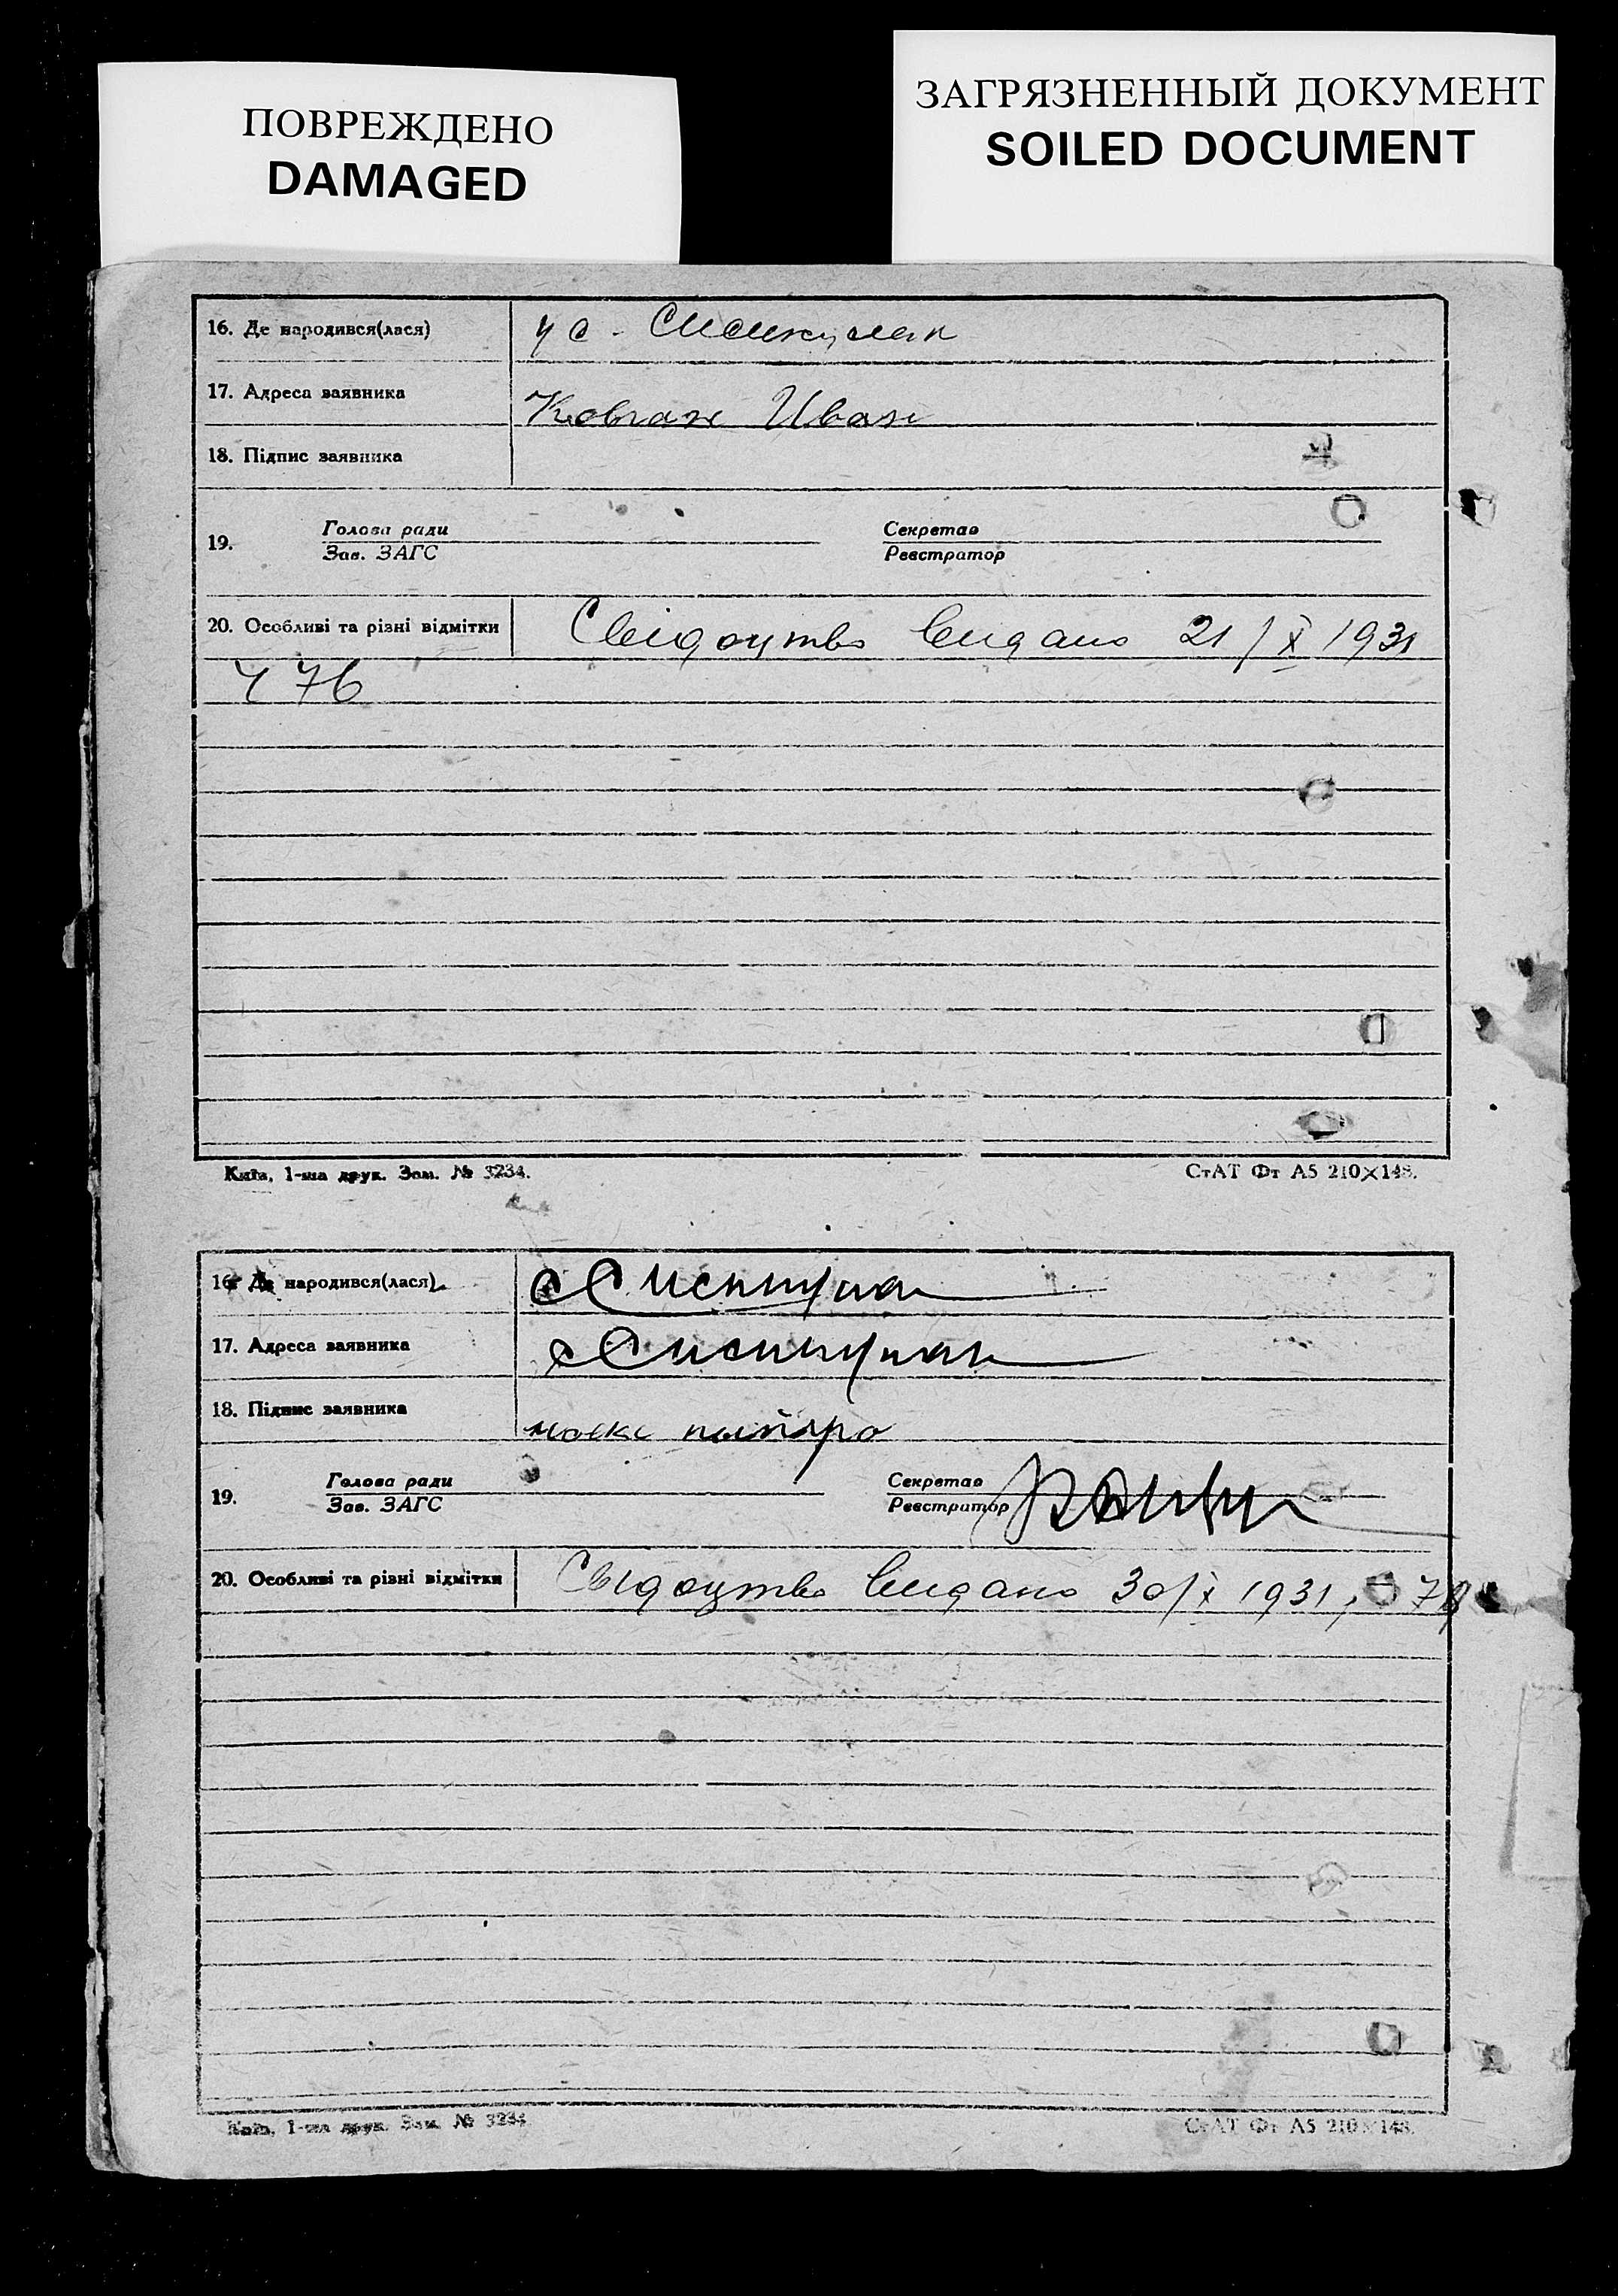 ПОВРЕЖДЕНО
DAMAGED
ЗАГРЯЗНЕННЫЙ ДОКУМЕНТ
SOILED DOCUMENT
16. Де народився(лася) у с.
17. Адреса заявника Иван
18. Підпис заявника
19. Голова ради Секретар
Зав. ЗАГС Реєстратор
20. Особливі та різні відмітки Свідоцтво видано 21/X 1931
ч 76
Київ, 1-ша друк. Зам. № 3234.
СтАТ Фт А5 210×148.
16. Де народився(лася) с
17. Адреса заявника с
18. Підпис заявника
19. Голова ради Секретар
Зав. ЗАГС Реєстратор
20. Особливі та різні відмітки Свідоцтво видано 30/X 1931,
Київ, 1-ша друк. Зам. № 3234
СтАТ Фт А5 210×148.